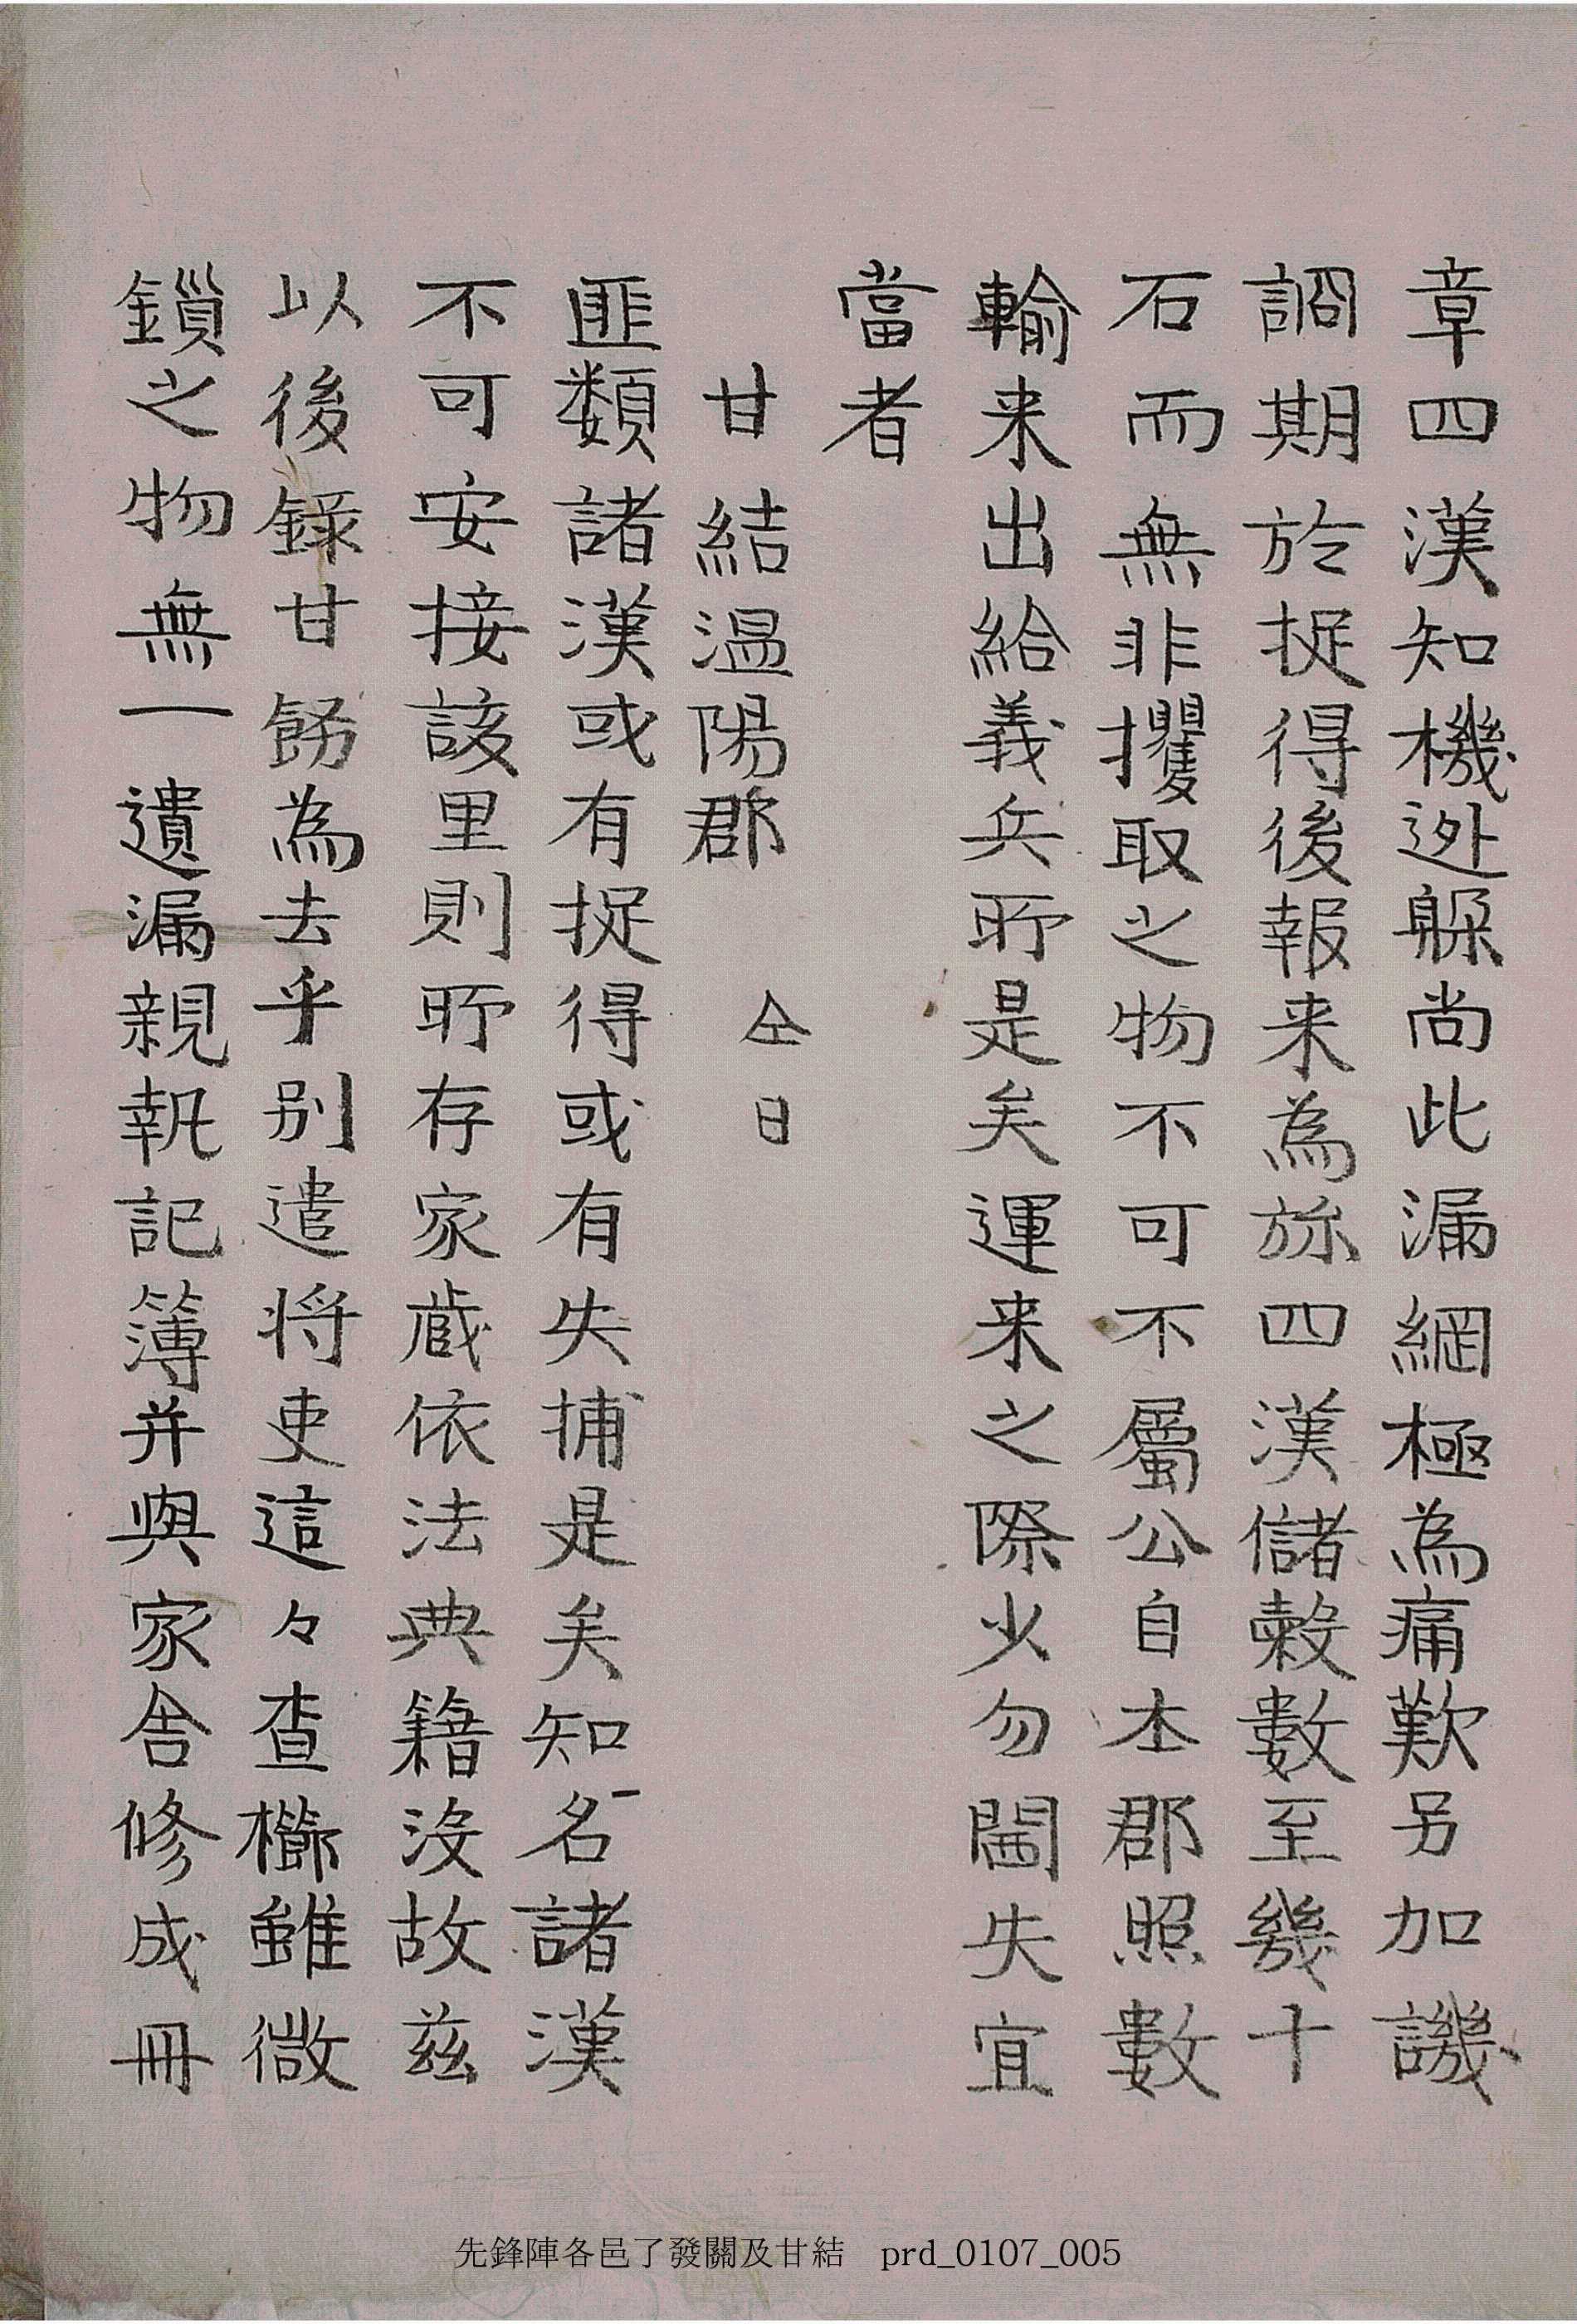 章四漢知機迯躱尚此漏網極為痛歎另加譏
詷期於捉得後報来為旀四漢儲糓數至幾十
石而無非攫取之物不可不屬公自本郡照數
輸来出給義兵所是矣運来之際少勿闖失宜
當者
甘結温陽郡 仝日
匪類諸漢或有捉得或有失捕是矣知名諸漢
不可安接該里則所存家蔵依法典籍沒故玆
以後錄甘飭為去乎别遣将吏這々查櫛雖微
鎻之物無一遺漏親執記簿并與家舍修成冊
先鋒陣各邑了發關及甘結 prd_0107_005